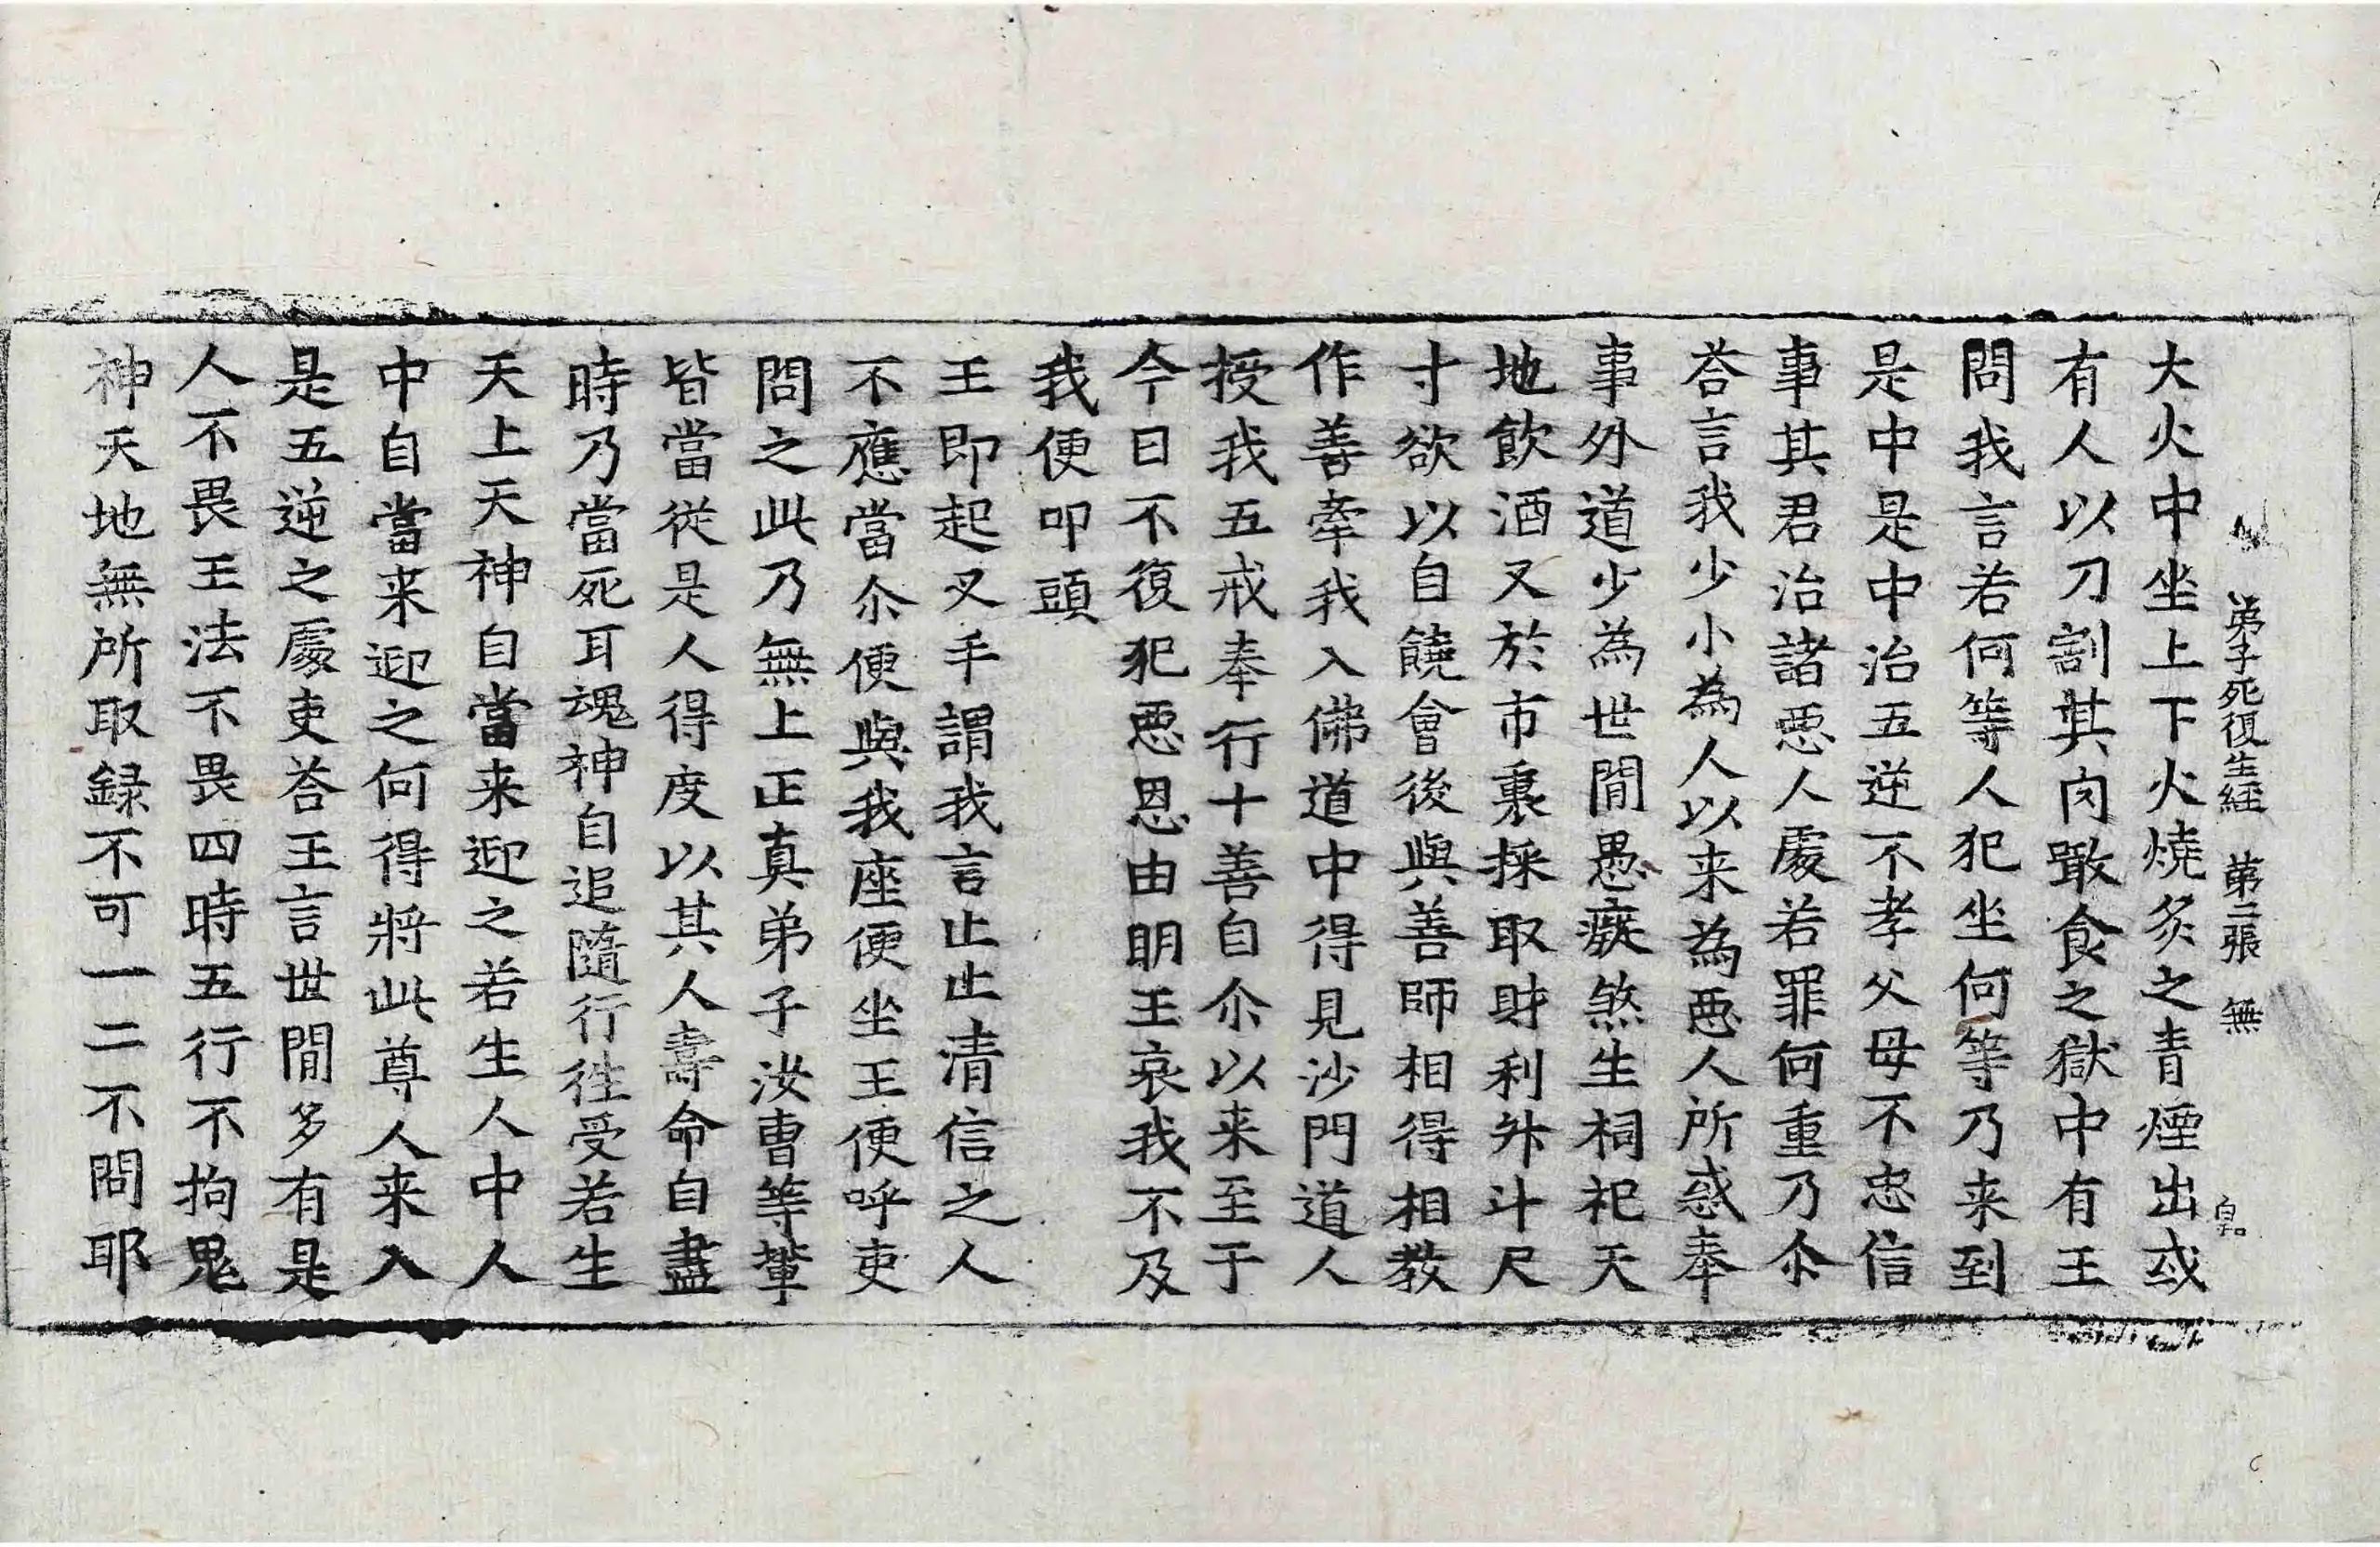 弟子死復生経　苐二張　無
大火中坐上下火燒炙之青煙出或
有人以刀割其肉噉食之獄中有王
問我言若何等人犯坐何等乃来到
是中是中治五逆不孝父母不忠信
事其君治諸惡人處若罪何重乃尒
荅言我少小為人以来為惡人所惑奉
事外道少為世間愚癡煞生祠祀天
地飲酒又於市裏採取財利升斗尺
寸欲以自饒會後與善師相得相教
作善牽我入佛道中得見沙門道人
授我五戒奉行十善自尒以来至于
今日不復犯惡恩由明王哀我不及
我便叩頭
王即起叉手謂我言止止清信之人
不應當尒便與我座便坐王便呼吏
問之此乃無上正真弟子汝曹等輩
皆當從是人得度以其人壽命自盡
時乃當死耳魂神自追隨行徃受若生
天上天神自當来迎之若生人中人
中自當来迎之何得將此尊人来入
是五逆之處吏荅王言世間多有是
人不畏王法不畏四時五行不拘鬼
神天地無所取録不可一二不問耶